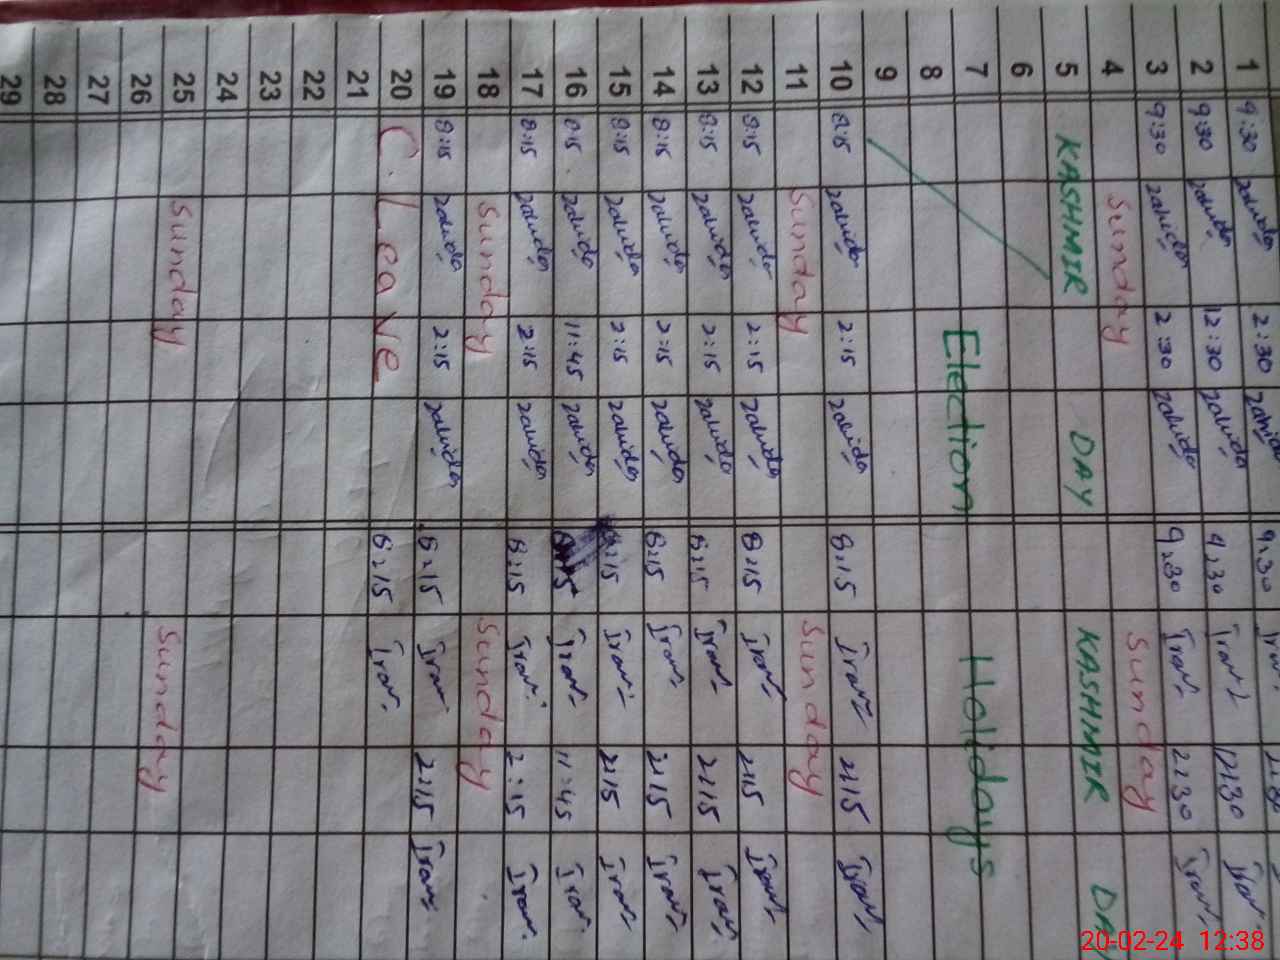 1 9:30 Zahida 2:30 Zahida 9:30 Iram
2 9:30 Zahida 12:30 Zahida 9:30 Iram 12:30 Iram
3 9:30 Zahida 2:30 Zahida 9:30 Iram 2:30 Iram
4 Sunday Sunday
5 KASHMIR DAY KASHMIR DAY
6
7 Election Holidays
8
9
10 8:15 Zahida 2:15 Zahida 8:15 Iram 2:15 Iram
11 Sunday Sunday
12 8:15 Zahida 2:15 Zahida 8:15 Iram 2:15 Iram
13 8:15 Zahida 2:15 Zahida 8:15 Iram 2:15 Iram
14 8:15 Zahida 2:15 Zahida 8:15 Iram 2:15 Iram
15 8:15 Zahida 2:15 Zahida 8:15 Iram 2:15 Iram
16 8:15 Zahida 11:45 Zahida 8:15 Iram 11:45 Iram
17 8:15 Zahida 2:15 Zahida 8:15 Iram 2:15 Iram
18 Sunday Sunday
19 8:15 Zahida 2:15 Zahida 8:15 Iram 2:15 Iram
20 C. Leave 8:15 Iram
21
22
23
24
25 Sunday Sunday
26
27
28
29
20-02-24 12:38